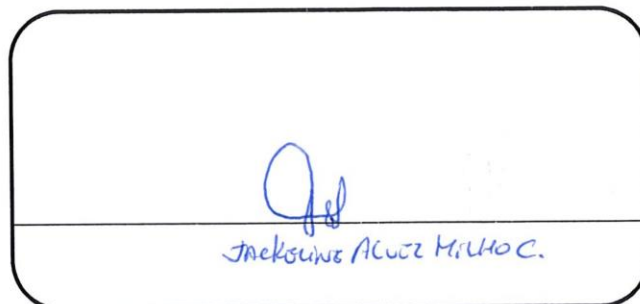 JACKELINE ALVEZ MILHO C.